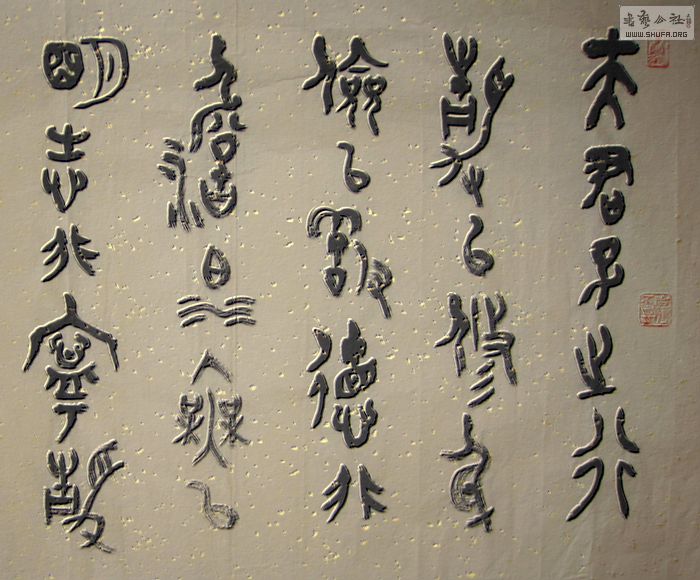 夫君子之行
靜以修身
儉以養德非
澹泊無以
明志非寧靜
書藝公社
WWW.SHUFA.ORG